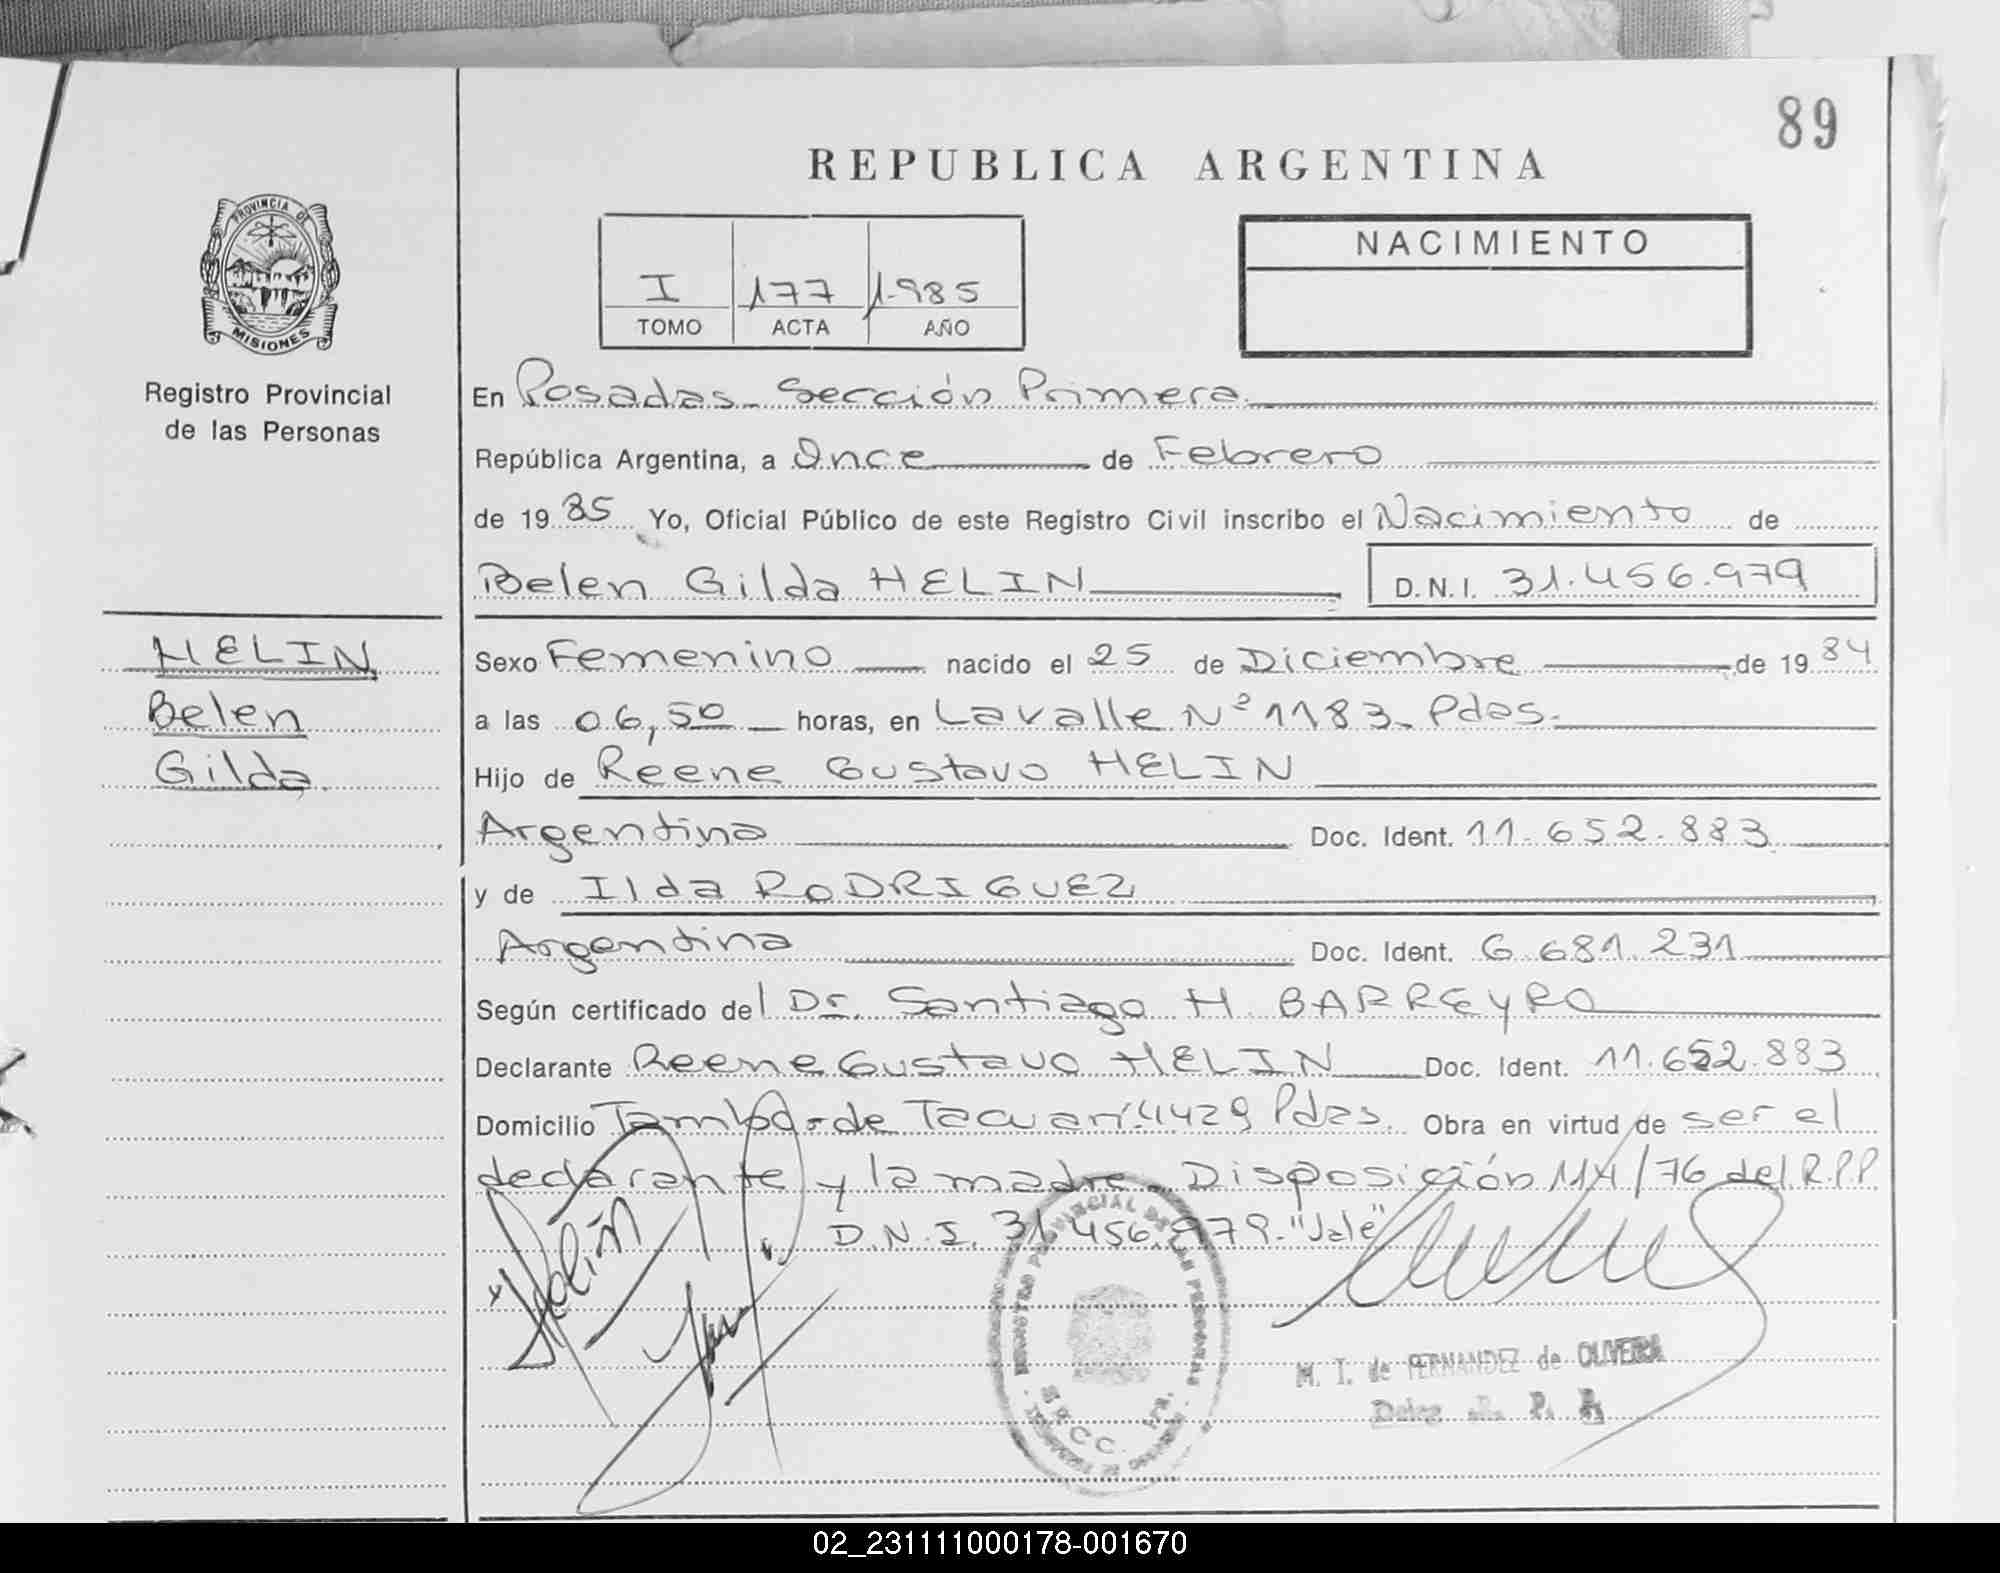 89
REPUBLICA ARGENTINA
PROVINCIA DE
MISIONES
Registro Provincial
de las Personas
I 177 1.985
TOMO ACTA AÑO
NACIMIENTO
En Posadas - Sección Primera.
República Argentina, a Once de Febrero
de 19 85 Yo, Oficial Público de este Registro Civil inscribo el Nacimiento de
Belen Gilda HELIN D.N.I. 31.456.979
HELIN
Belen
Gilda
Sexo Femenino nacido el 25 de Diciembre de 19 84
a las 06,50 horas, en Lavalle Nº 1183- Pdas.
Hijo de Reene Gustavo HELIN
Argentina Doc. Ident. 11.652.883
y de Ilda RODRIGUEZ
Argentina Doc. Ident. 6.681.231
Según certificado del Dr. Santiago H. BARREYRO
Declarante Reene Gustavo HELIN Doc. Ident. 11.652.883
Domicilio Tambor de Tacuarí 4429 Pdas. Obra en virtud de ser el
declarante y la madre. Disposición 114/76 del R.P.P
D.N.I. 31.456.979. "Vale"
Helin
REGISTRO PROVINCIAL DE LAS PERSONAS
M. I. de FERNANDEZ de OLIVEIRA
02_231111000178-001670